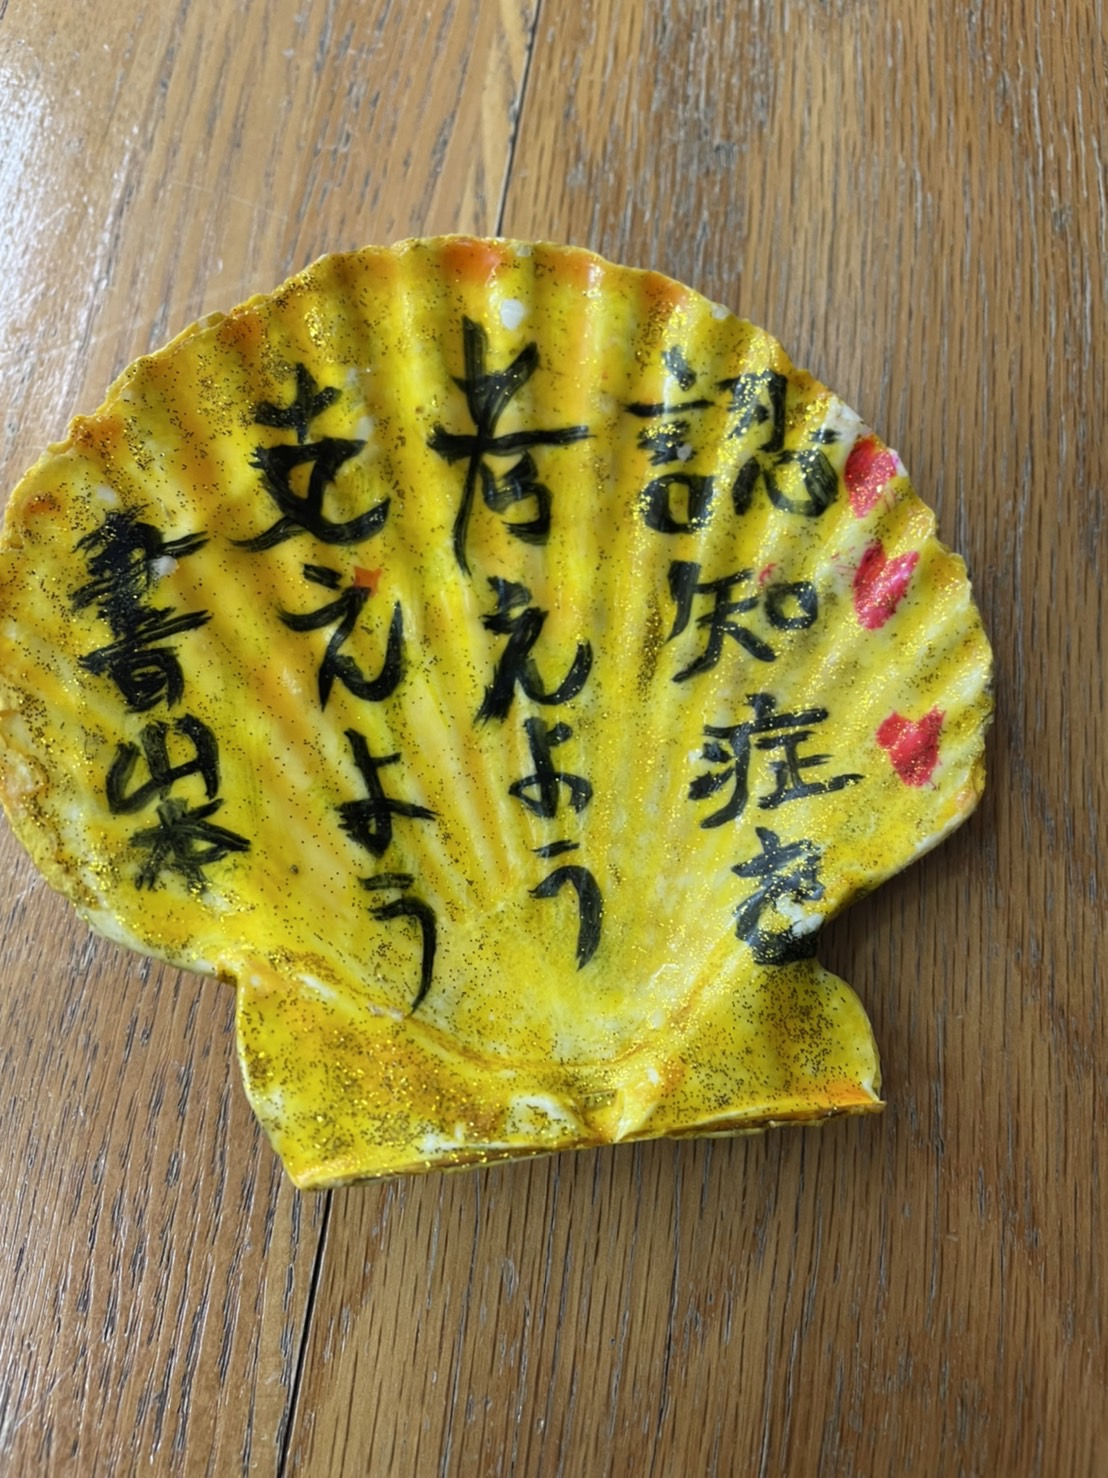 認知症を
考えよう
支えよう